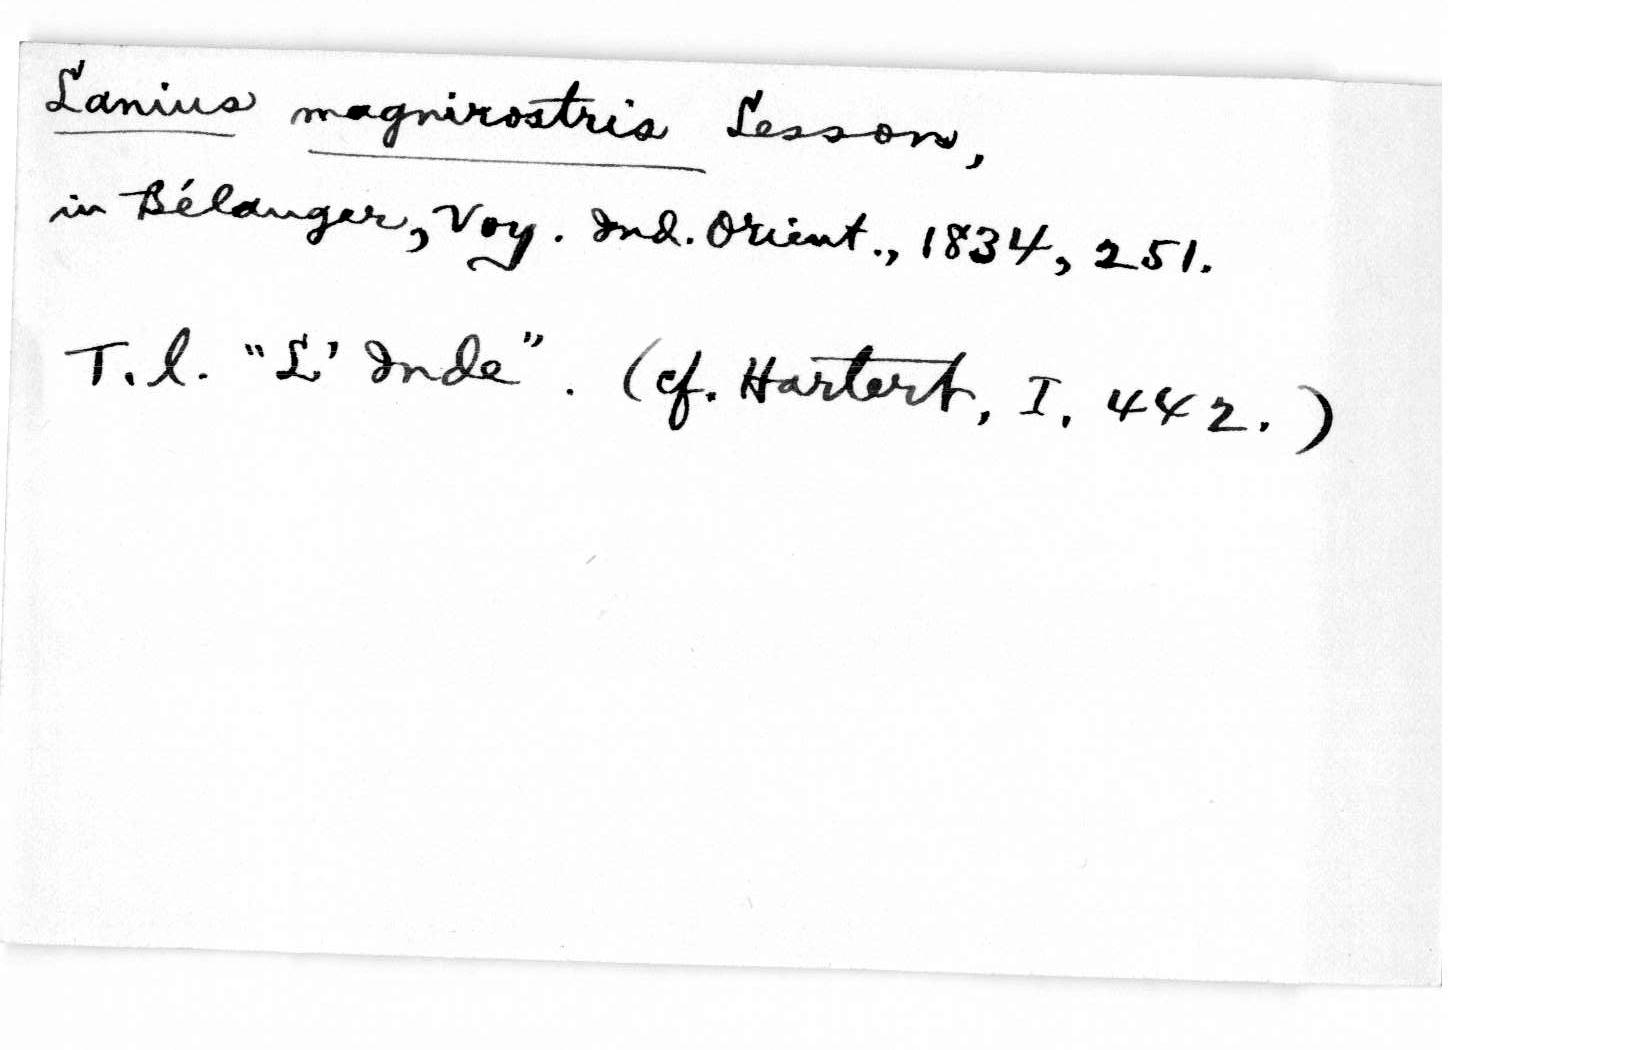 Lanius magnirostris Lesson,
in Bélanger, Voy. Ind. Orient., 1834, 251.
T.l. "L'Inde". (cf. Hartert, I, 442.)